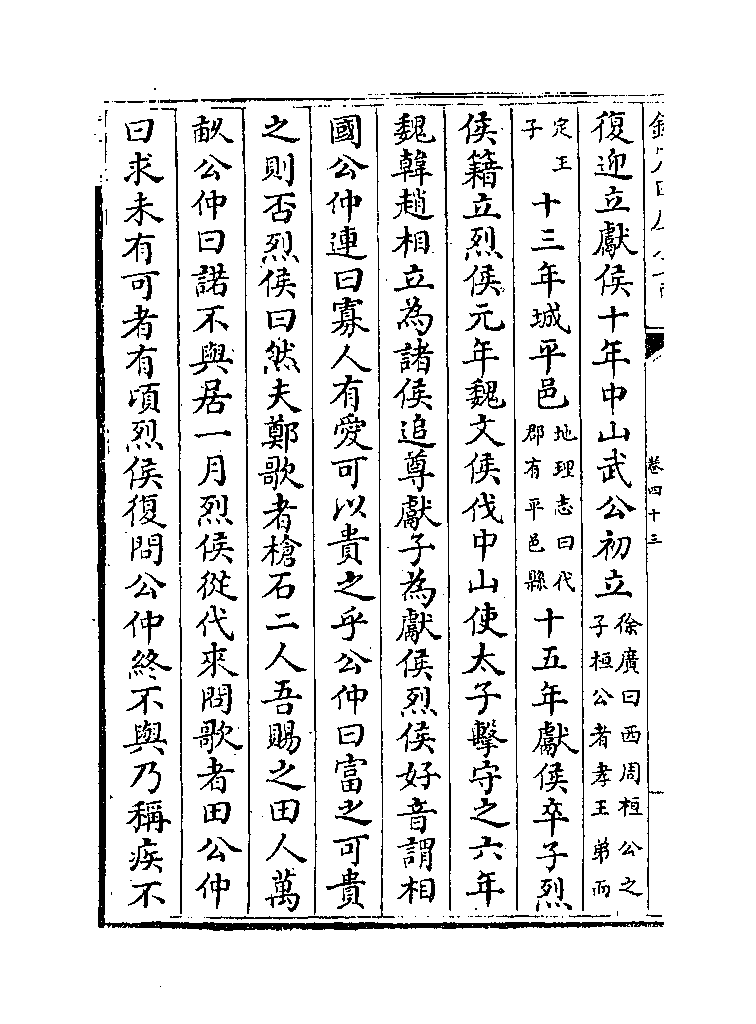 卷四十三
復迎立獻侯十年中山武公初立徐廣曰西周桓公之子桓公者孝王弟而
定王子十三年城平邑地理志曰代郡有平邑縣十五年獻侯卒子烈
侯籍立烈侯元年魏文侯伐中山使太子擊守之六年
魏韓趙相立為諸侯追尊獻子為獻侯烈侯好音謂相
國公仲連曰寡人有愛可以貴之乎公仲曰富之可貴
之則否烈侯曰然夫鄭歌者槍石二人吾賜之田人萬
畝公仲曰諾不與居一月烈侯從代來問歌者田公仲
曰求未有可者有頃烈侯復問公仲終不與乃稱疾不